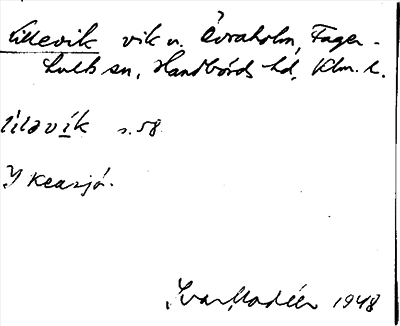 Lillevik vik v. Övraholm, Fager-
hults sn, Handbörds hd, Klm. l.
lilavík s. 58.
I Kearsjö.
Ivar Modéer 1948